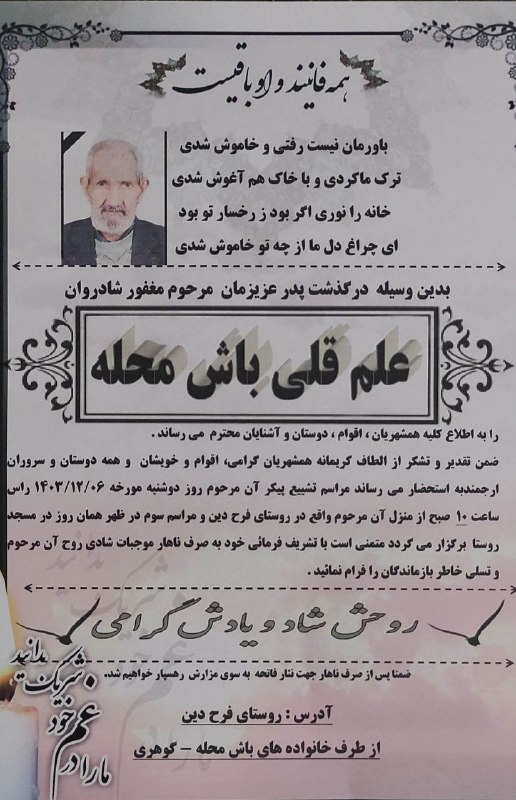 همه فانیند و او باقیست
باورمان نیست رفتی و خاموش شدی
ترک ماکردی و با خاک هم آغوش شدی
خانه را نوری اگر بود ز رخسار تو بود
ای چراغ دل ما از چه تو خاموش شدی
بدین وسیله درگذشت پدر عزیزمان مرحوم مغفور شادروان
علم قلی باش محله
را به اطلاع کلیه همشهریان ، اقوام ، دوستان و آشنایان محترم می رساند .
ضمن تقدیر و تشکر از الطاف کریمانه همشهریان گرامی، اقوام و خویشان و همه دوستان و سروران
ارجمندبه استحضار می رساند مراسم تشییع پیکر آن مرحوم روز دوشنبه مورخه ۱۴۰۳/۱۲/۰۶ راس
ساعت ۱۰ صبح از منزل آن مرحوم واقع در روستای فرح دین و مراسم سوم در ظهر همان روز در مسجد
روستا برگزار می گردد متمنی است با تشریف فرمائی خود به صرف ناهار موجبات شادی روح آن مرحوم
و تسلی خاطر بازماندگان را فرام نمائید .
روحش شاد و یادش گرامی
ضمنا پس از صرف ناهار جهت نثار فاتحه به سوی مزارش رهسپار خواهیم شد.
آدرس : روستای فرح دین
از طرف خانواده های باش محله – گوهری
ما را در غم خود شریک بدانید